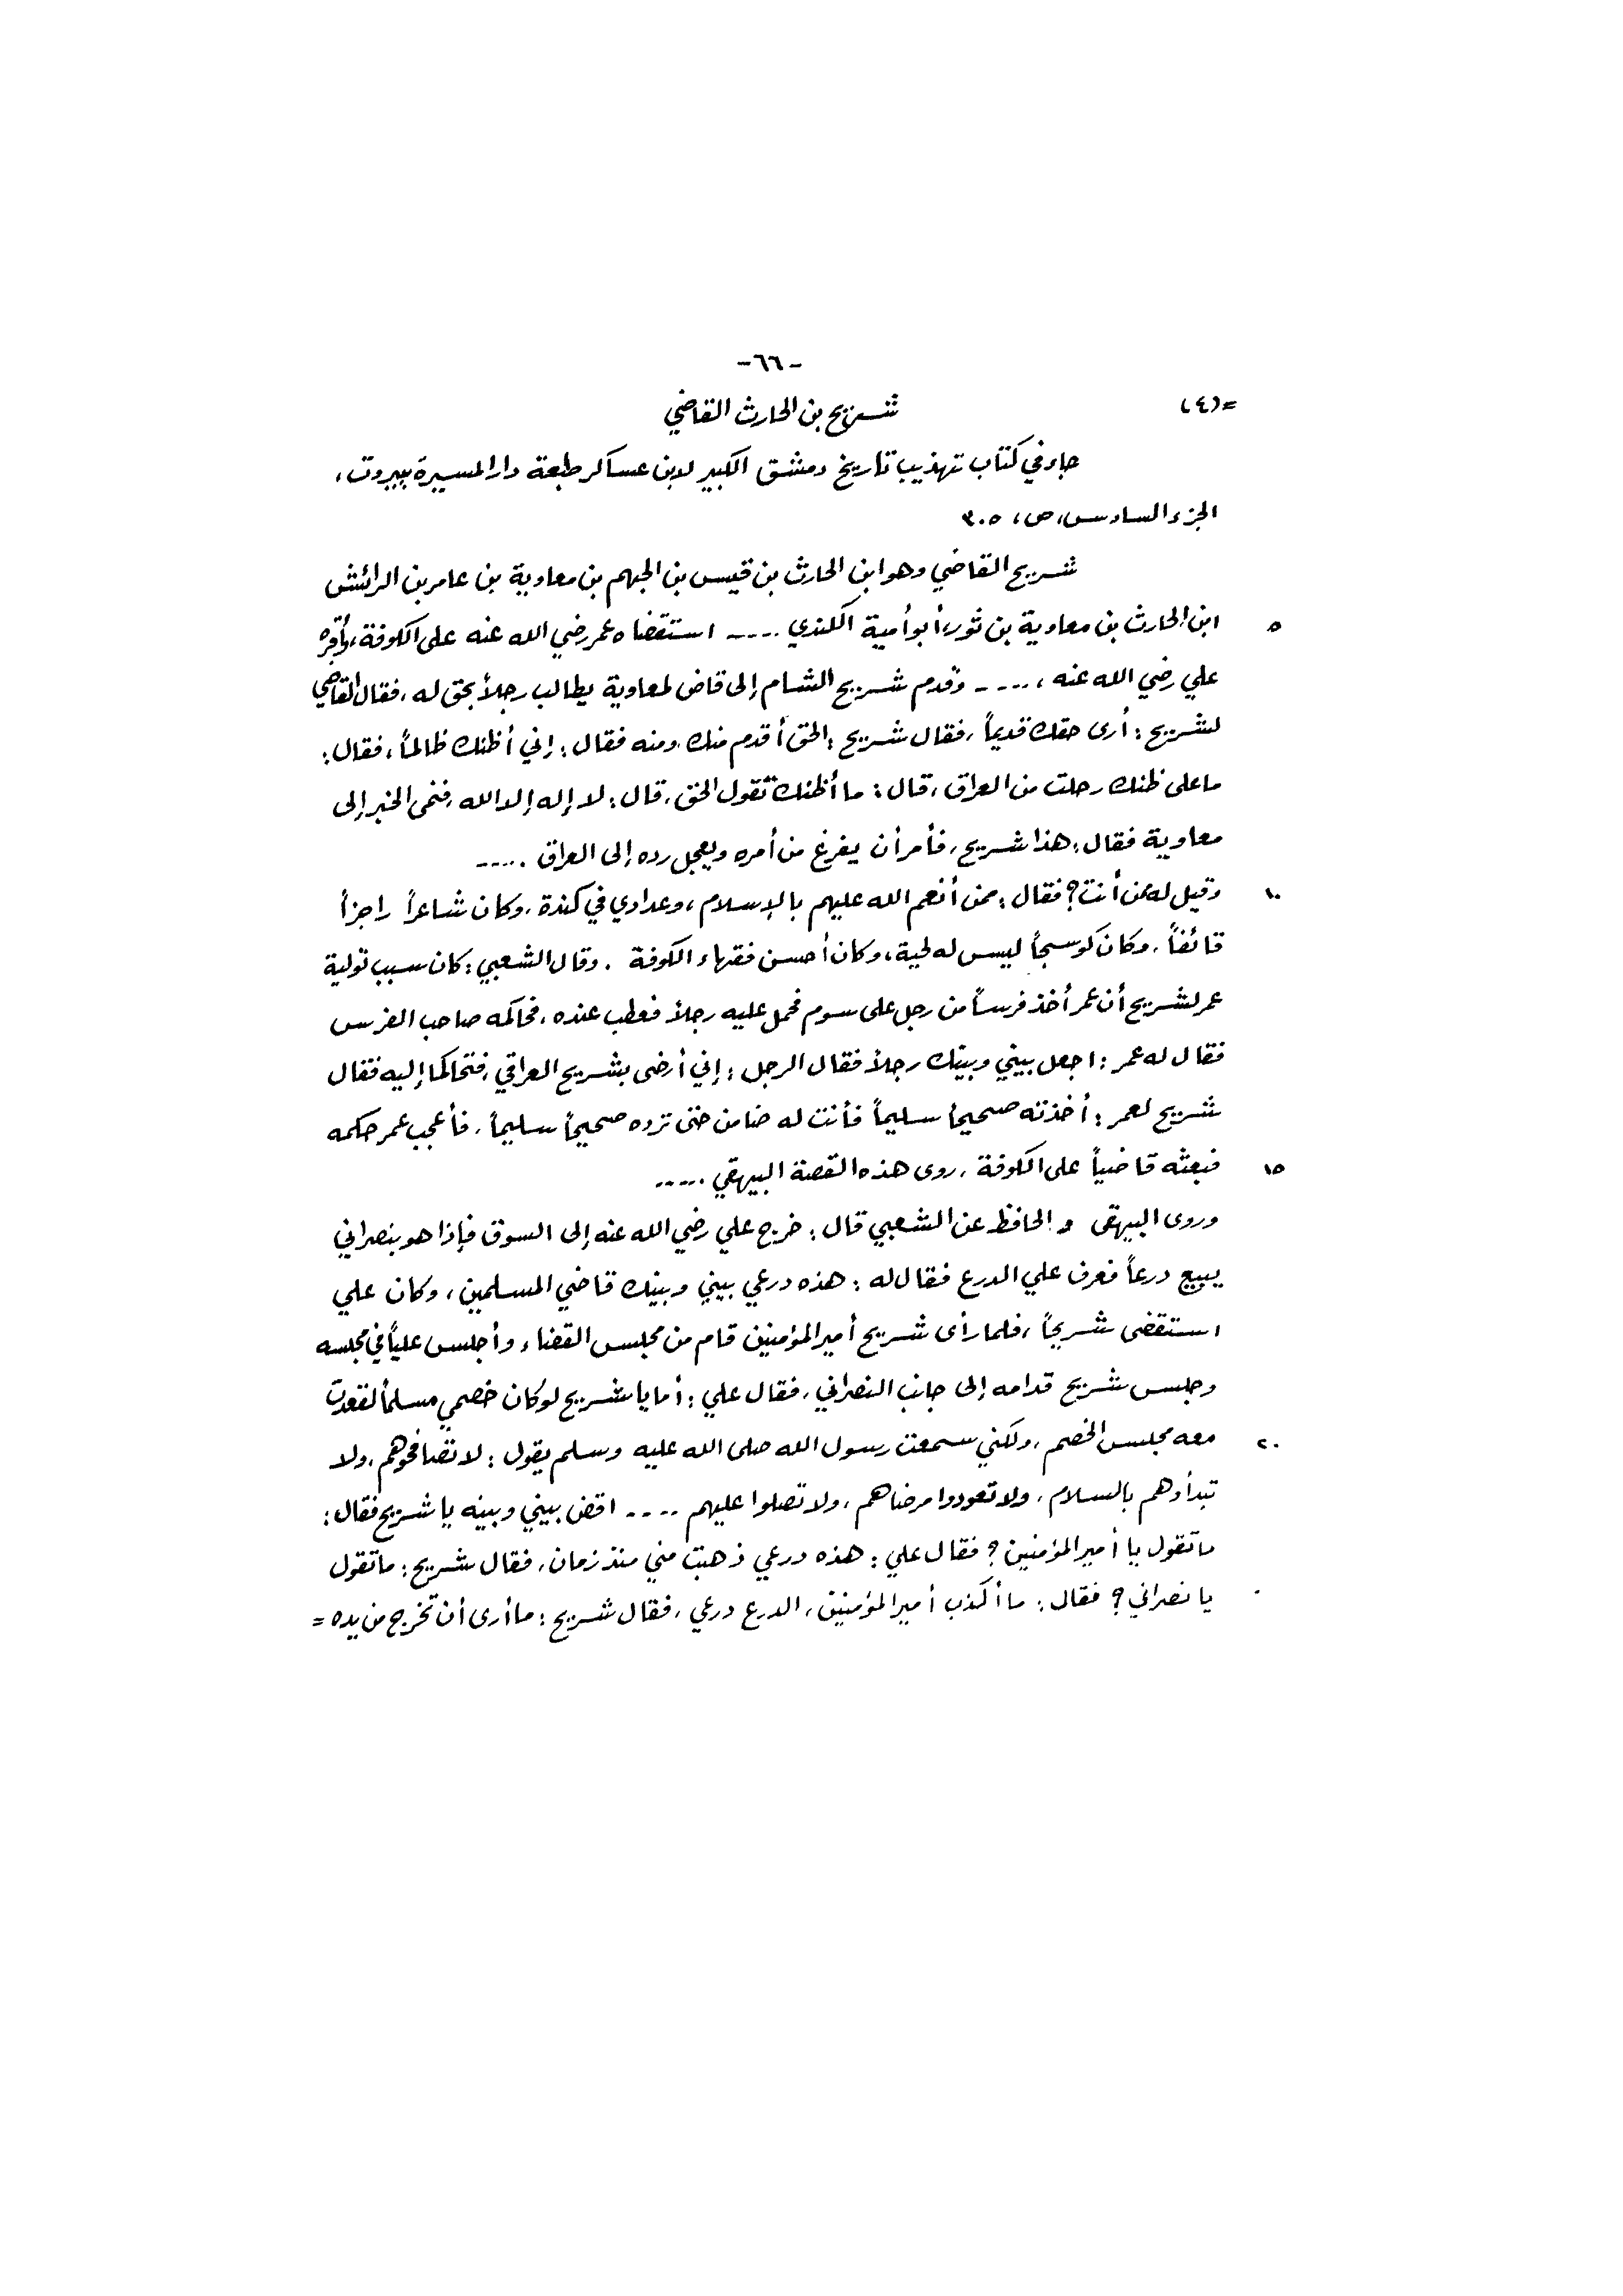 -٦٦-
=(٤) شريح بن الحارث القاضي
جاء في كتاب تهذيب تاريخ دمشق الكبير لابن عساكر طبعة دار المسيرة ببيروت،
الجزء السادس، ص، ٣٠٥
شريح القاضي وهو ابن الحارث بن قيس بن الجهم بن معاوية بن عامر بن الرائش
٥ ابن الحارث بن معاوية بن ثور، أبو أمية الكندي ..... استقضاه عمر رضي الله عنه على الكوفة، وأقره
علي رضي الله عنه، ..... وقدم شريح الشام إلى قاض لمعاوية يطالب رجلاً بحق له، فقال القاضي
لشريح: أرى حقك قديماً، فقال شريح: الحق أقدم منك ومنه فقال: إني أظنك ظالماً، فقال:
ما على ظنك رحلت من العراق، قال: ما أظنك تقول الحق، قال: لا إله إلا الله، فنمى الخبر إلى
معاوية فقال: هذا شريح، فأمر أن يفرغ من أمره ويعجل رده إلى العراق .....
١٠ وقيل له ممن أنت؟ فقال: ممن أنعم الله عليهم بالإسلام، وعدادي في كندة، وكان شاعراً راجزاً
قائفاً، وكان كوسجاً ليس له لحية، وكان أحسن فقهاء الكوفة. وقال الشعبي: كان سبب تولية
عمر لشريح أن عمر أخذ فرساً من رجل على سوم فحمل عليه رجلاً فعطب عنده، فحاكمه صاحب الفرس
فقال له عمر: اجعل بيني وبينك رجلاً فقال الرجل: إني أرضى بشريح العراقي، فتحاكما إليه فقال
شريح لعمر: أخذته صحيحاً سليماً فأنت له ضامن حتى ترده صحيحاً سليماً، فأعجب عمر حكمه
١٥ فبعثه قاضياً على الكوفة، روى هذه القصة البيهقي .....
وروى البيهقي والحافظ عن الشعبي قال: خرج علي رضي الله عنه إلى السوق فإذا هو بنصراني
يبيع درعاً فعرف علي الدرع فقال له: هذه درعي بيني وبينك قاضي المسلمين، وكان علي
استقضى شريحاً، فلما رأى شريح أمير المؤمنين قام من مجلس القضاء وأجلس علياً في مجلسه
وجلس شريح قدامه إلى جانب النصراني، فقال علي: أما يا شريح لو كان خصمي مسلماً لقعدت
٢٠ معه مجلس الخصم، ولكني سمعت رسول الله صلى الله عليه وسلم يقول: لا تصافحوهم، ولا
تبدأوهم بالسلام، ولا تعودوا مرضاهم، ولا تصلوا عليهم .... اقض بيني وبينه يا شريح فقال:
ما تقول يا أمير المؤمنين؟ فقال علي: هذه درعي ذهبت مني منذ زمان، فقال شريح: ما تقول
يا نصراني؟ فقال: ما أكذب أمير المؤمنين، الدرع درعي، فقال شريح: ما أرى أن تخرج من يده =